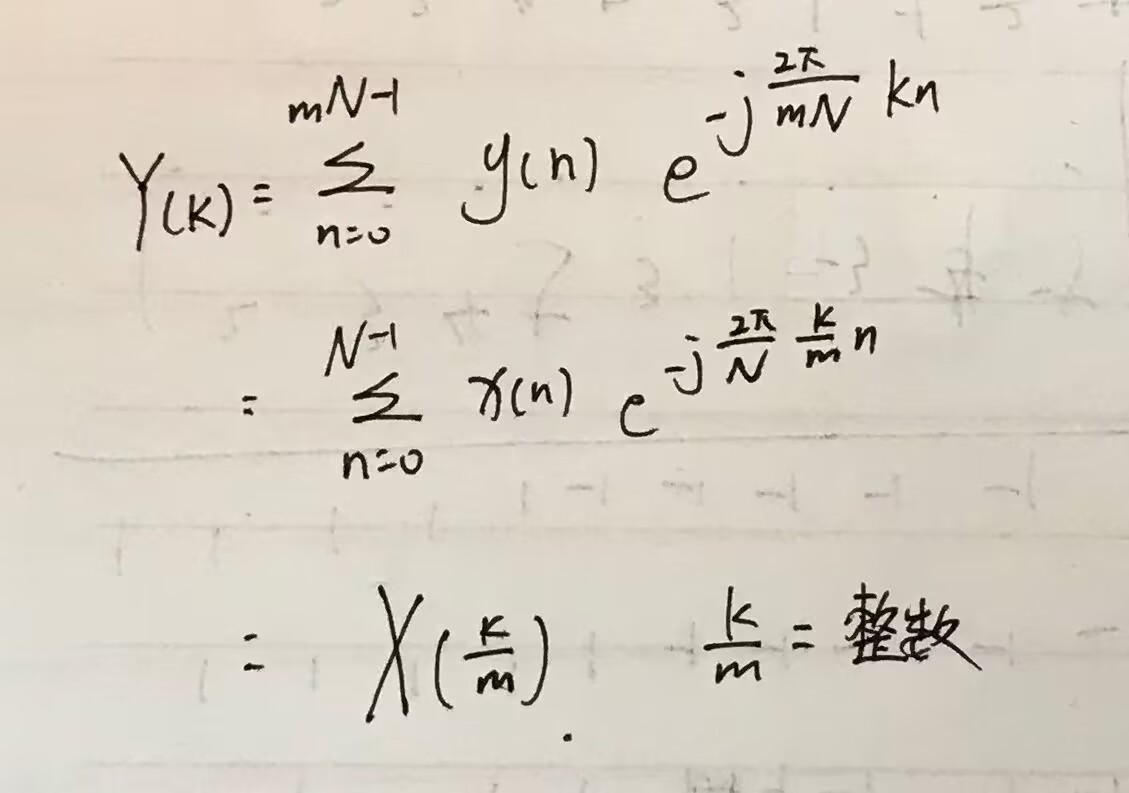 Y(k) = \sum_{n=0}^{mN-1} y(n) e^{-j \frac{2π}{mN} kn}
= \sum_{n=0}^{N-1} x(n) e^{-j \frac{2π}{N} \frac{k}{m} n}
= X(\frac{k}{m}) . \frac{k}{m} = 整数